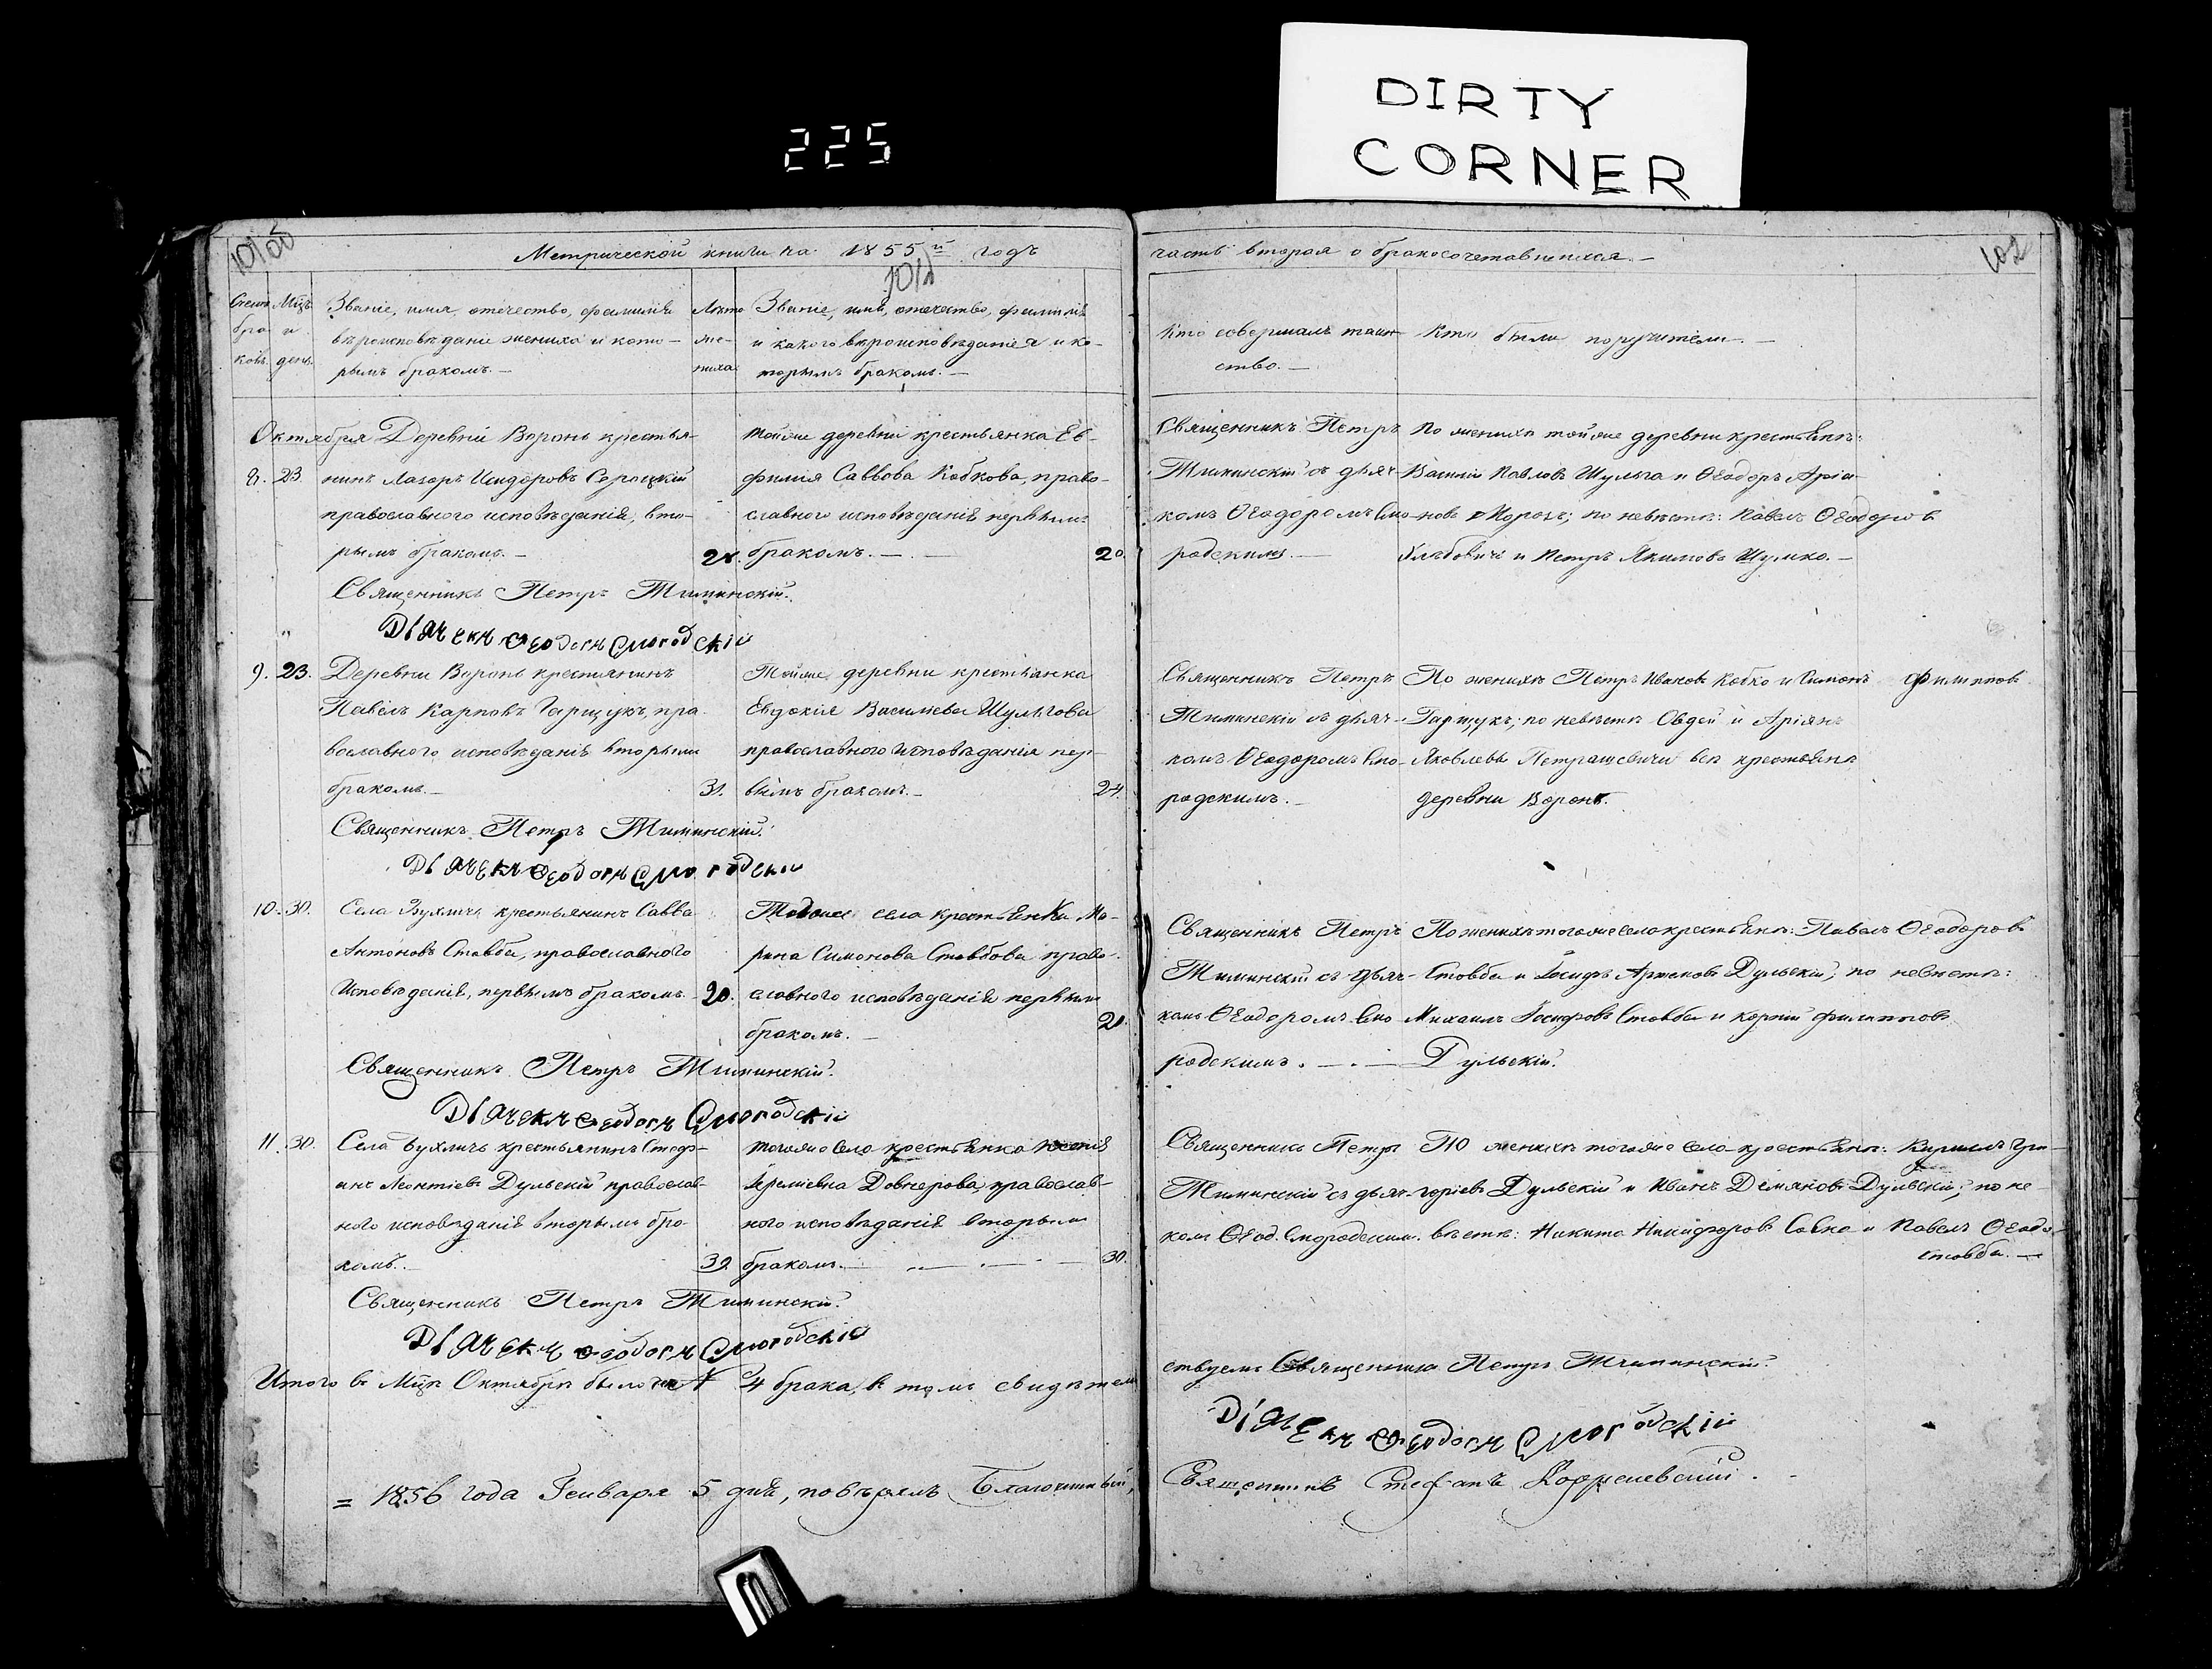 DIRTY
CORNER
225
Метрической книги на 1855й годъ
часть вторая о бракосочетавшихся.—
102
Мѣц.
и
день.
бра
ковъ.
Званіе, имя, отечество, фамилія
вѣроисповѣданіе жениха и кото-
рымъ бракомъ.—
Лѣта
же-
ниха.
Званіе, имя, отечество, фамилія
и какого вѣроисповѣданія и ко-
торымъ бракомъ.—
Кто совершалъ таин-
ство.—
Кто были поручители.—
Октября
8. 23.
Деревни Воронь крестья-
нинъ Лазарь Исидоровъ Сороцкій
православного исповѣданія, вто-
рымъ бракомъ.—
тойже деревни крестьянка Ев-
фимія Саввова Кобкова, право-
славного исповѣданія первымъ
бракомъ.—
20.
Священникъ Петръ
Тиминскій съ дьяч-
комъ Ѳеодоромъ Смо-
родскимъ.—
По женихѣ тойже деревни крестьяне:
Василій Павловъ Шульга и Ѳеодоръ Арія-
новъ Морозъ; по невѣстѣ: Павелъ Ѳеодоровъ
и Петръ Якимовъ Шумко.—
Священникъ Петръ Тиминскій.
Діячекъ Ѳеодоръ Смородскій
9. 23.
Деревни Воронь крестянинъ
Павелъ Карповъ Гарщукъ, пра-
вославного исповѣданія вторымъ
бракомъ.—
31.
Тойже деревни крестьянка
Евдокія Васильева Шульгова
православного исповѣданія пер-
вымъ бракомъ.—
24.
Священникъ Петръ
Тиминскій съ дьяч-
комъ Ѳеодоромъ Смо-
родскимъ.—
По женихѣ Петръ Ивановъ Кобко и Симонъ Филиповъ
Гарщукъ; по невѣстѣ Овдей и Аріянъ
Яковлевы Петрашевичи всѣ крестьяне
деревни Воронь.
Священникъ Петръ Тиминскій.
Діячекъ Ѳеодоръ Смородскій
10. 30.
Села Бухличь крестьянинъ Савва
Антоновъ Стовба, православного
Исповѣданія, первымъ бракомъ.
20.
села крестьянка Ма-
рина Симонова Стовбова право-
славного исповѣданія первымъ
бракомъ.—
Священникъ Петръ
Тиминскій съ дьяч-
комъ Ѳеодоромъ Смо-
родскимъ.—
По женихѣ тогоже села крестьяне: Павелъ Ѳеодоровъ
Стовба и Іосифъ Артемовъ Дульскій; по невѣстѣ:
Михаилъ Іосифовъ Стовба и Корній Филиповъ
Дульскій.
Священникъ Петръ Тиминскій.
Діячекъ Ѳеодоръ Смородскій
11. 30.
Села Бухличь крестьянинъ Стеф-
анъ Леонтіевъ Дульскій православ-
ного исповѣданія вторымъ бра-
комъ.
39.
тогоже села крестьянка
Іереміевна Довнерова, православ-
ного исповѣданія вторымъ
бракомъ.—
30.
Священникъ Петръ
Тиминскій съ дьяч-
комъ Ѳеод. Смородским.
По женихѣ тогоже села крестьяне: Кириллъ Гри-
горіевъ Дульскій и Иванъ Демяновъ Дульскій; по не-
вѣстѣ: Никита Никифоровъ Савко и Павелъ Ѳеодо.
стовба.—
Священникъ Петръ Тиминскій.
Діячекъ Ѳеодоръ Смородскій
Итого въ Мѣцѣ Октябрѣ было 4 брака, въ томъ свидѣтель
ствуемъ Священникъ Петръ Тиминскій.
Діячекъ Ѳеодоръ Смородскій
= 1856 года Генваря 5 дня, повѣрялъ Благочинный,
Священникъ Стефанъ